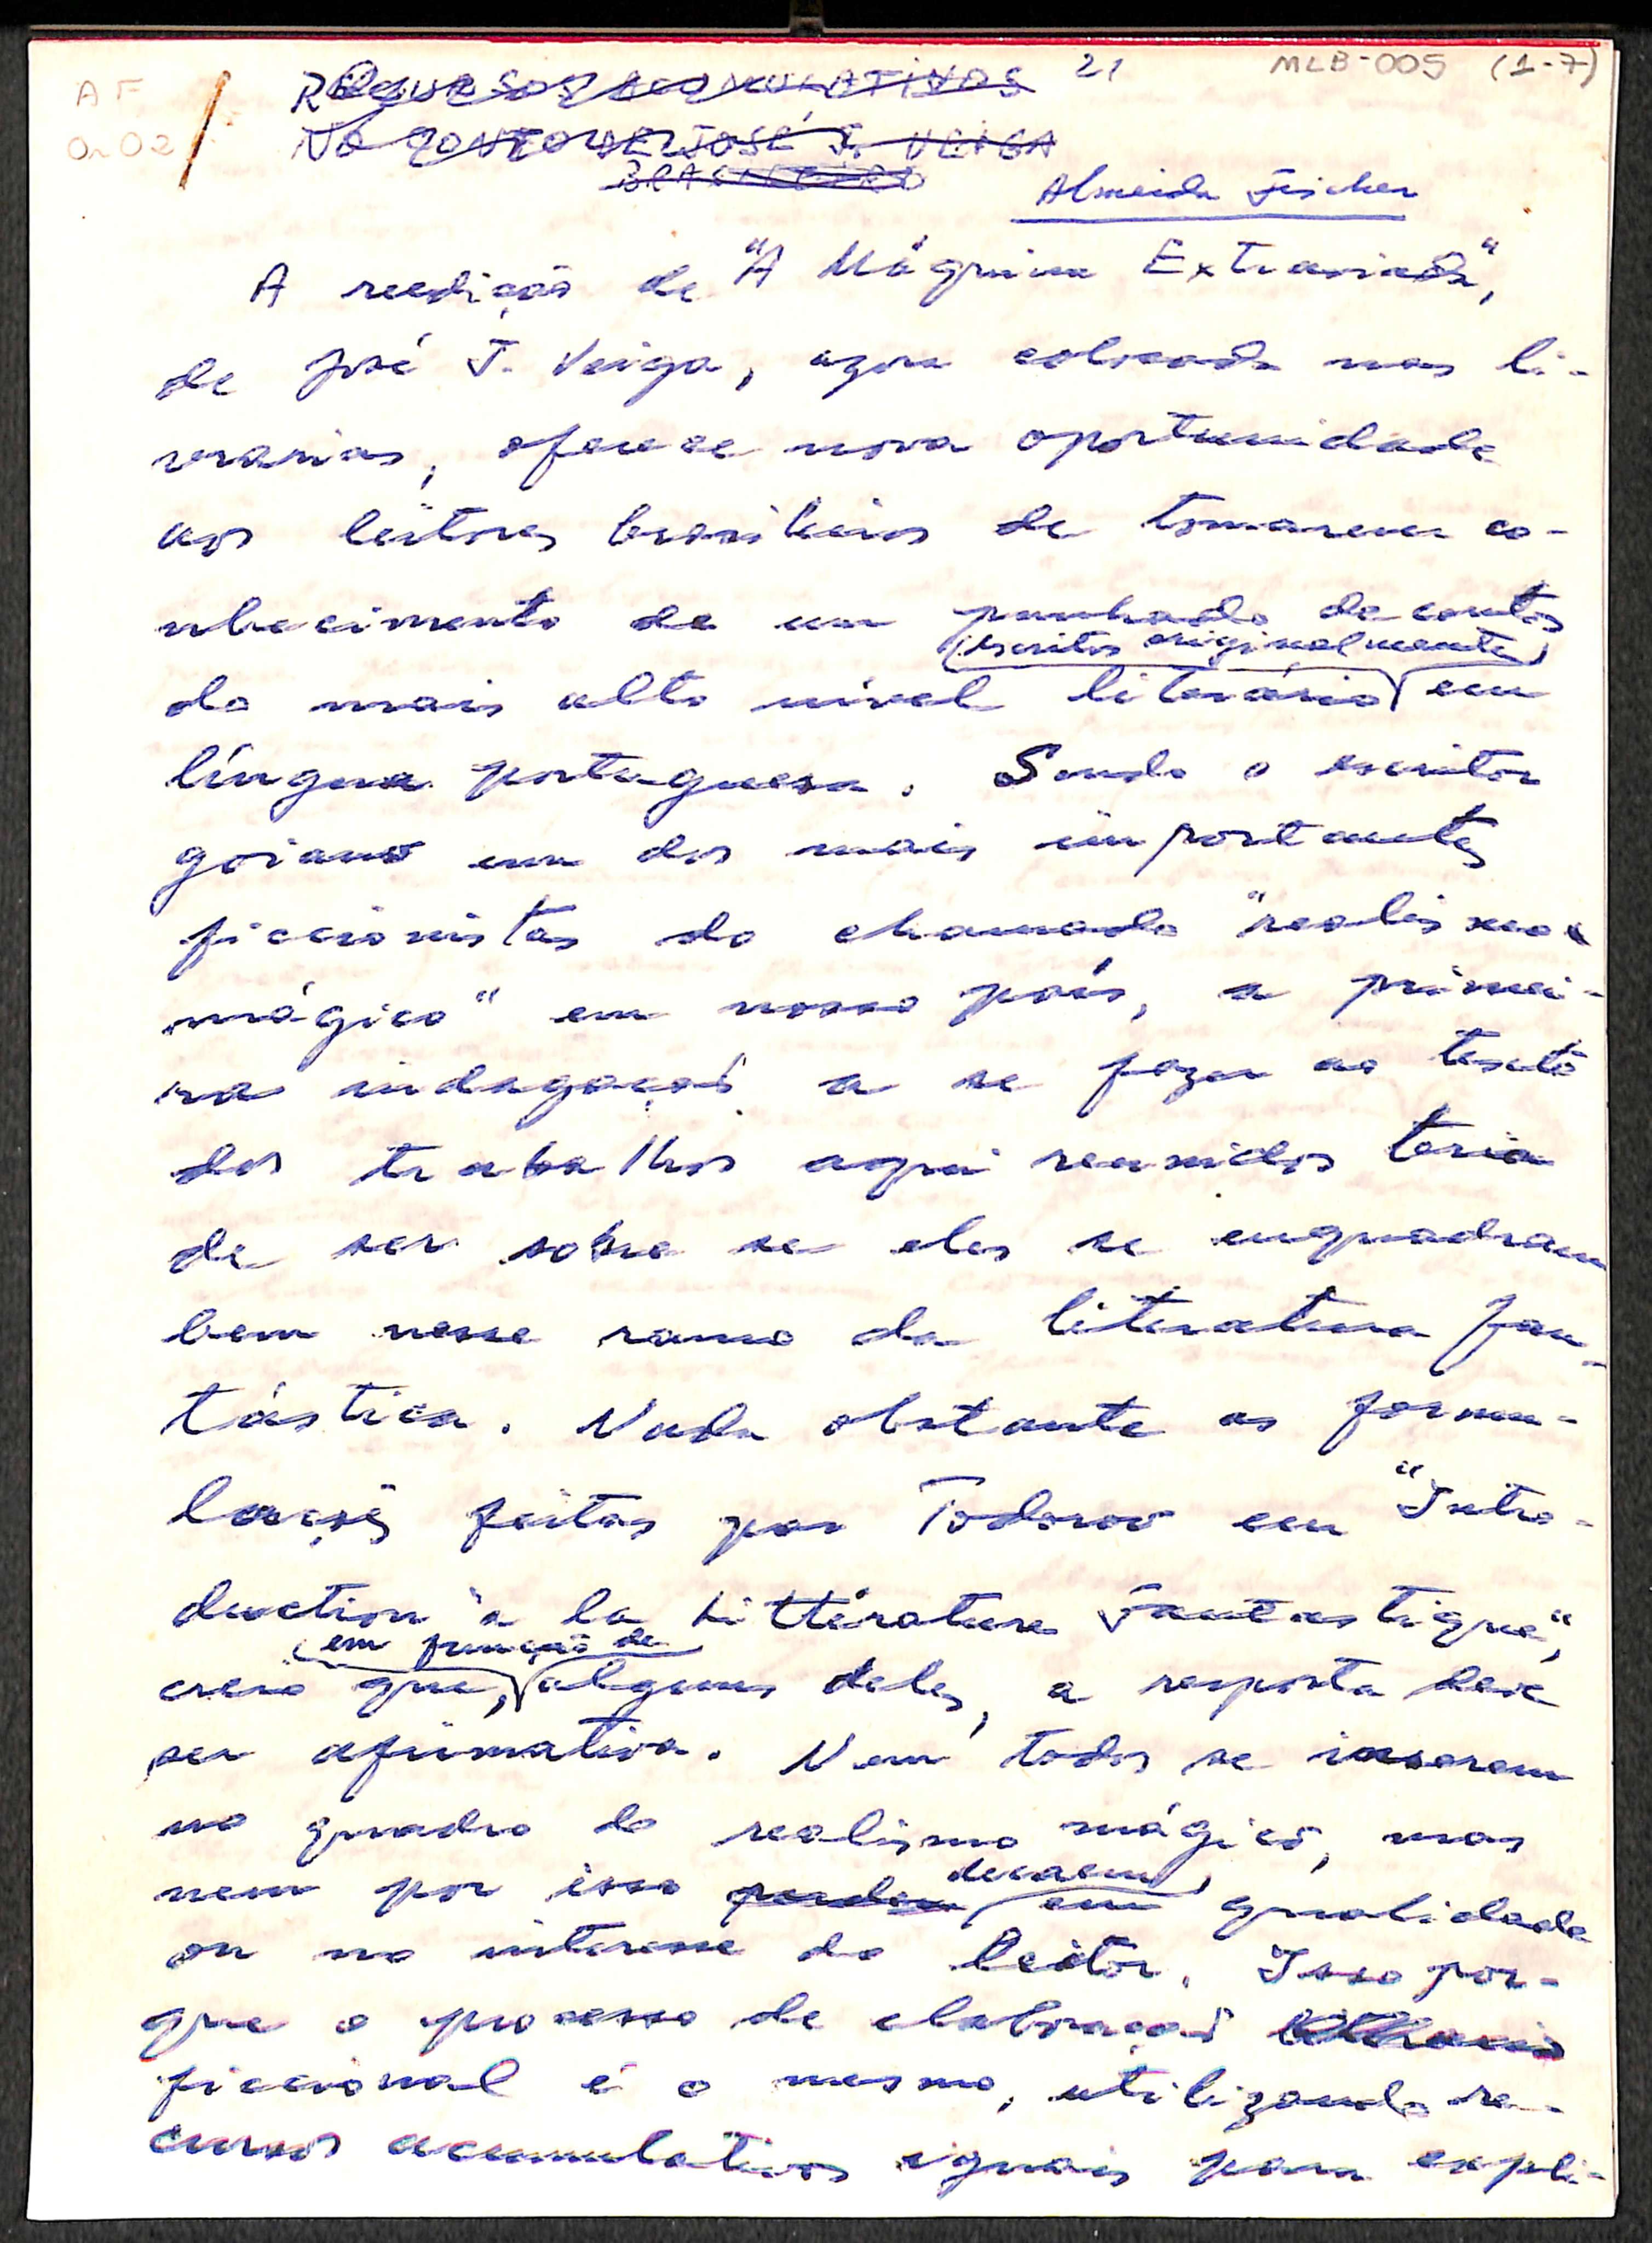 AF
Or02
21
MLB-005 (1-7)
RECURSOS ACUMULATIVOS
NO CONTO DE JOSÉ J. VEIGA
BRASILEIRO
Almeida Fischer
A reedição de "A Máquina Extraviada",
de José J. Veiga, agora colocada nas li-
vrarias, oferece nova oportunidade
aos leitores brasileiros de tomarem co-
nhecimento de um punhado de contos
escritos originalmente
do mais alto nível literário em
língua portuguesa. Sendo o escritor
goiano um dos mais importantes
ficcionistas do chamado "realismo
mágico" em nosso país, a primei-
ra indagação a se fazer ao texto
dos trabalhos aqui reunidos teria
de ser sobre se eles se enquadram
bem nesse ramo da literatura fan-
tástica. Nada obstante as formu-
lações feitas por Todorov em "Intro-
duction à la Littérature Fantastique",
em função de
creio que, alguns deles, a resposta deve
ser afirmativa. Nem todos se inserem
no quadro do realismo mágico, mas
decaem
nem por isso perdem em qualidade
ou no interesse do leitor. Isso por-
que o processo de elaboração
ficcional é o mesmo, utilizando re-
cursos acumulativos iguais para expli-